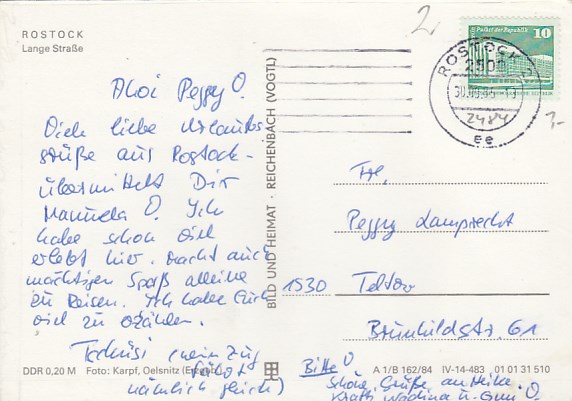 ROSTOCK
Lange Straße
2,
Palast der Republik
10
ROSTOCK
2500
2484
ee
3,-
Ahoi Peggy O.
Dich liebe Urlaubs-
grüße aus Rostock-
übermittelt Dir
Manuela O. Ich
habe schon viel
erlebt hier. Macht auch
mächtigen Spaß alleine
zu Reisen. Ich habe Euch
viel zu erzählen.
Tschüsi (mein Zug
fährt
nämlich gleich)
BILD UND HEIMAT · REICHENBACH (VOGTL)
Frl.
Peggy Lamprecht
1530 Teltow
Brunhildstr. 61
DDR 0,20 M Foto: Karpf, Oelsnitz (Erzgeb.)
A 1/B 162/84 IV-14-483 01 01 31 510
Bitte
schöne Grüße an Heike,